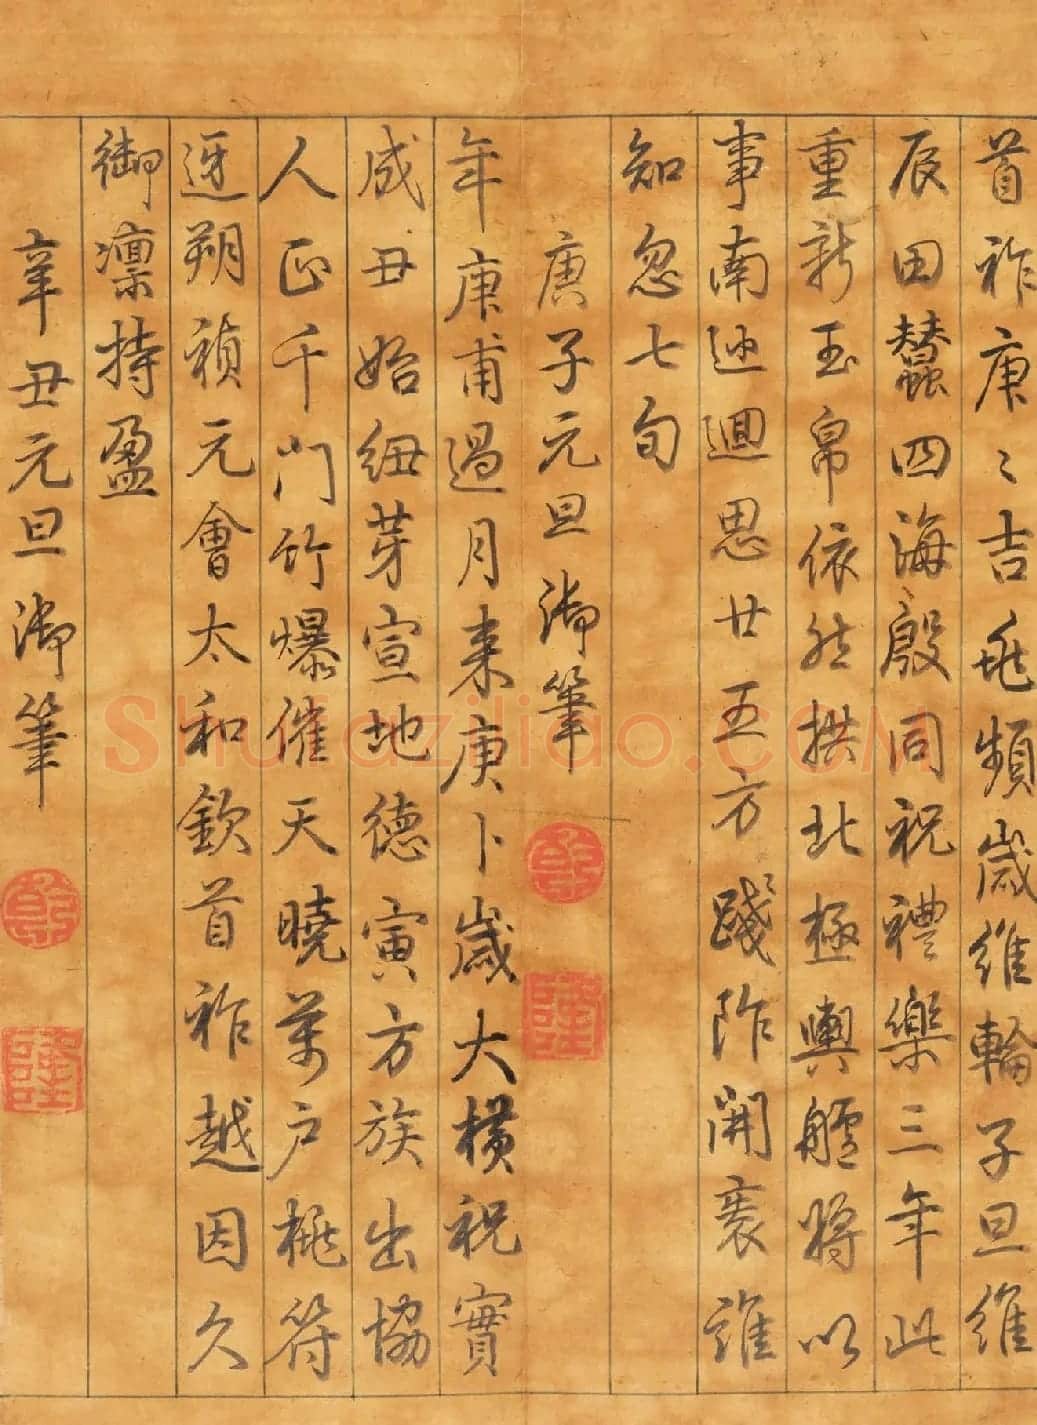 首祚庚〻吉兆頻歲維輪子旦維
辰田蠶四海殷同祝禮樂三年此
重新玉帛依然拱北極輿艫將以
事南巡迴思廿五方踐阼開袠誰
知忽七旬
庚子元旦御筆
乾
隆
年庚甫過月来庚卜歲大橫祝實
成丑始紐芽宣地德寅方族出協
人正千門竹爆催天曉萬戶桃符
迓朔禎元會太和欽首祚越因久
御凜持盈
辛丑元旦御筆
乾
隆
Shufaziliao.coM